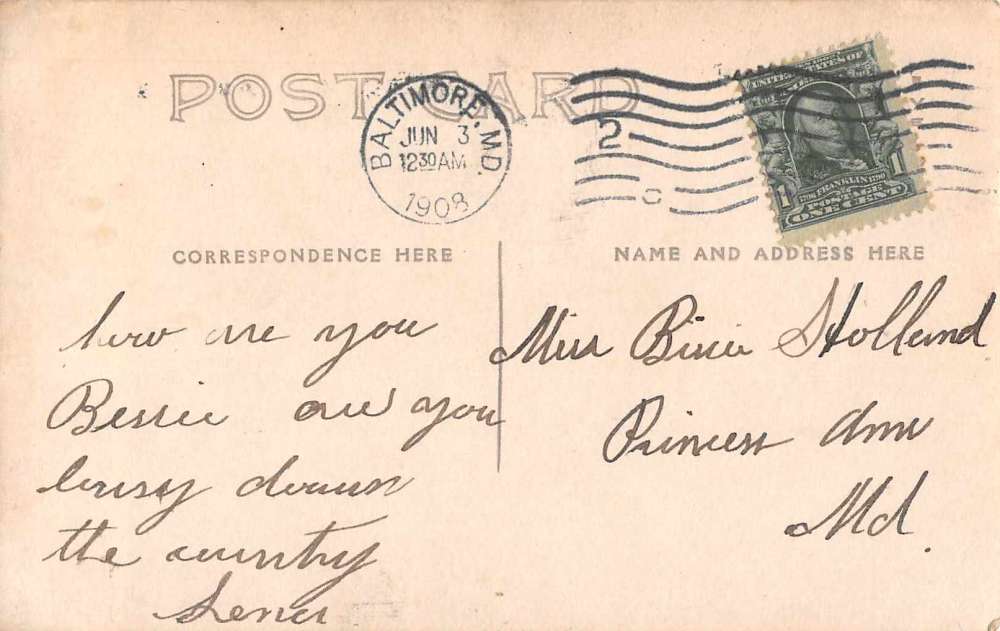 POST CARD
BALTIMORE, MD.
JUN 3
12 30 AM
1908
2
C
UNITED STATES OF
1 1706 FRANKLIN 1790 1
POSTAGE
ONE CENT
CORRESPONDENCE HERE
NAME AND ADDRESS HERE
how are you
Bessie are you
busy down
the country
Lena
Miss Holland
Princess Ann
Md.